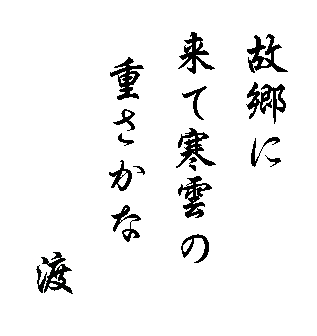 故郷に
来て寒雲の
重さかな
渡